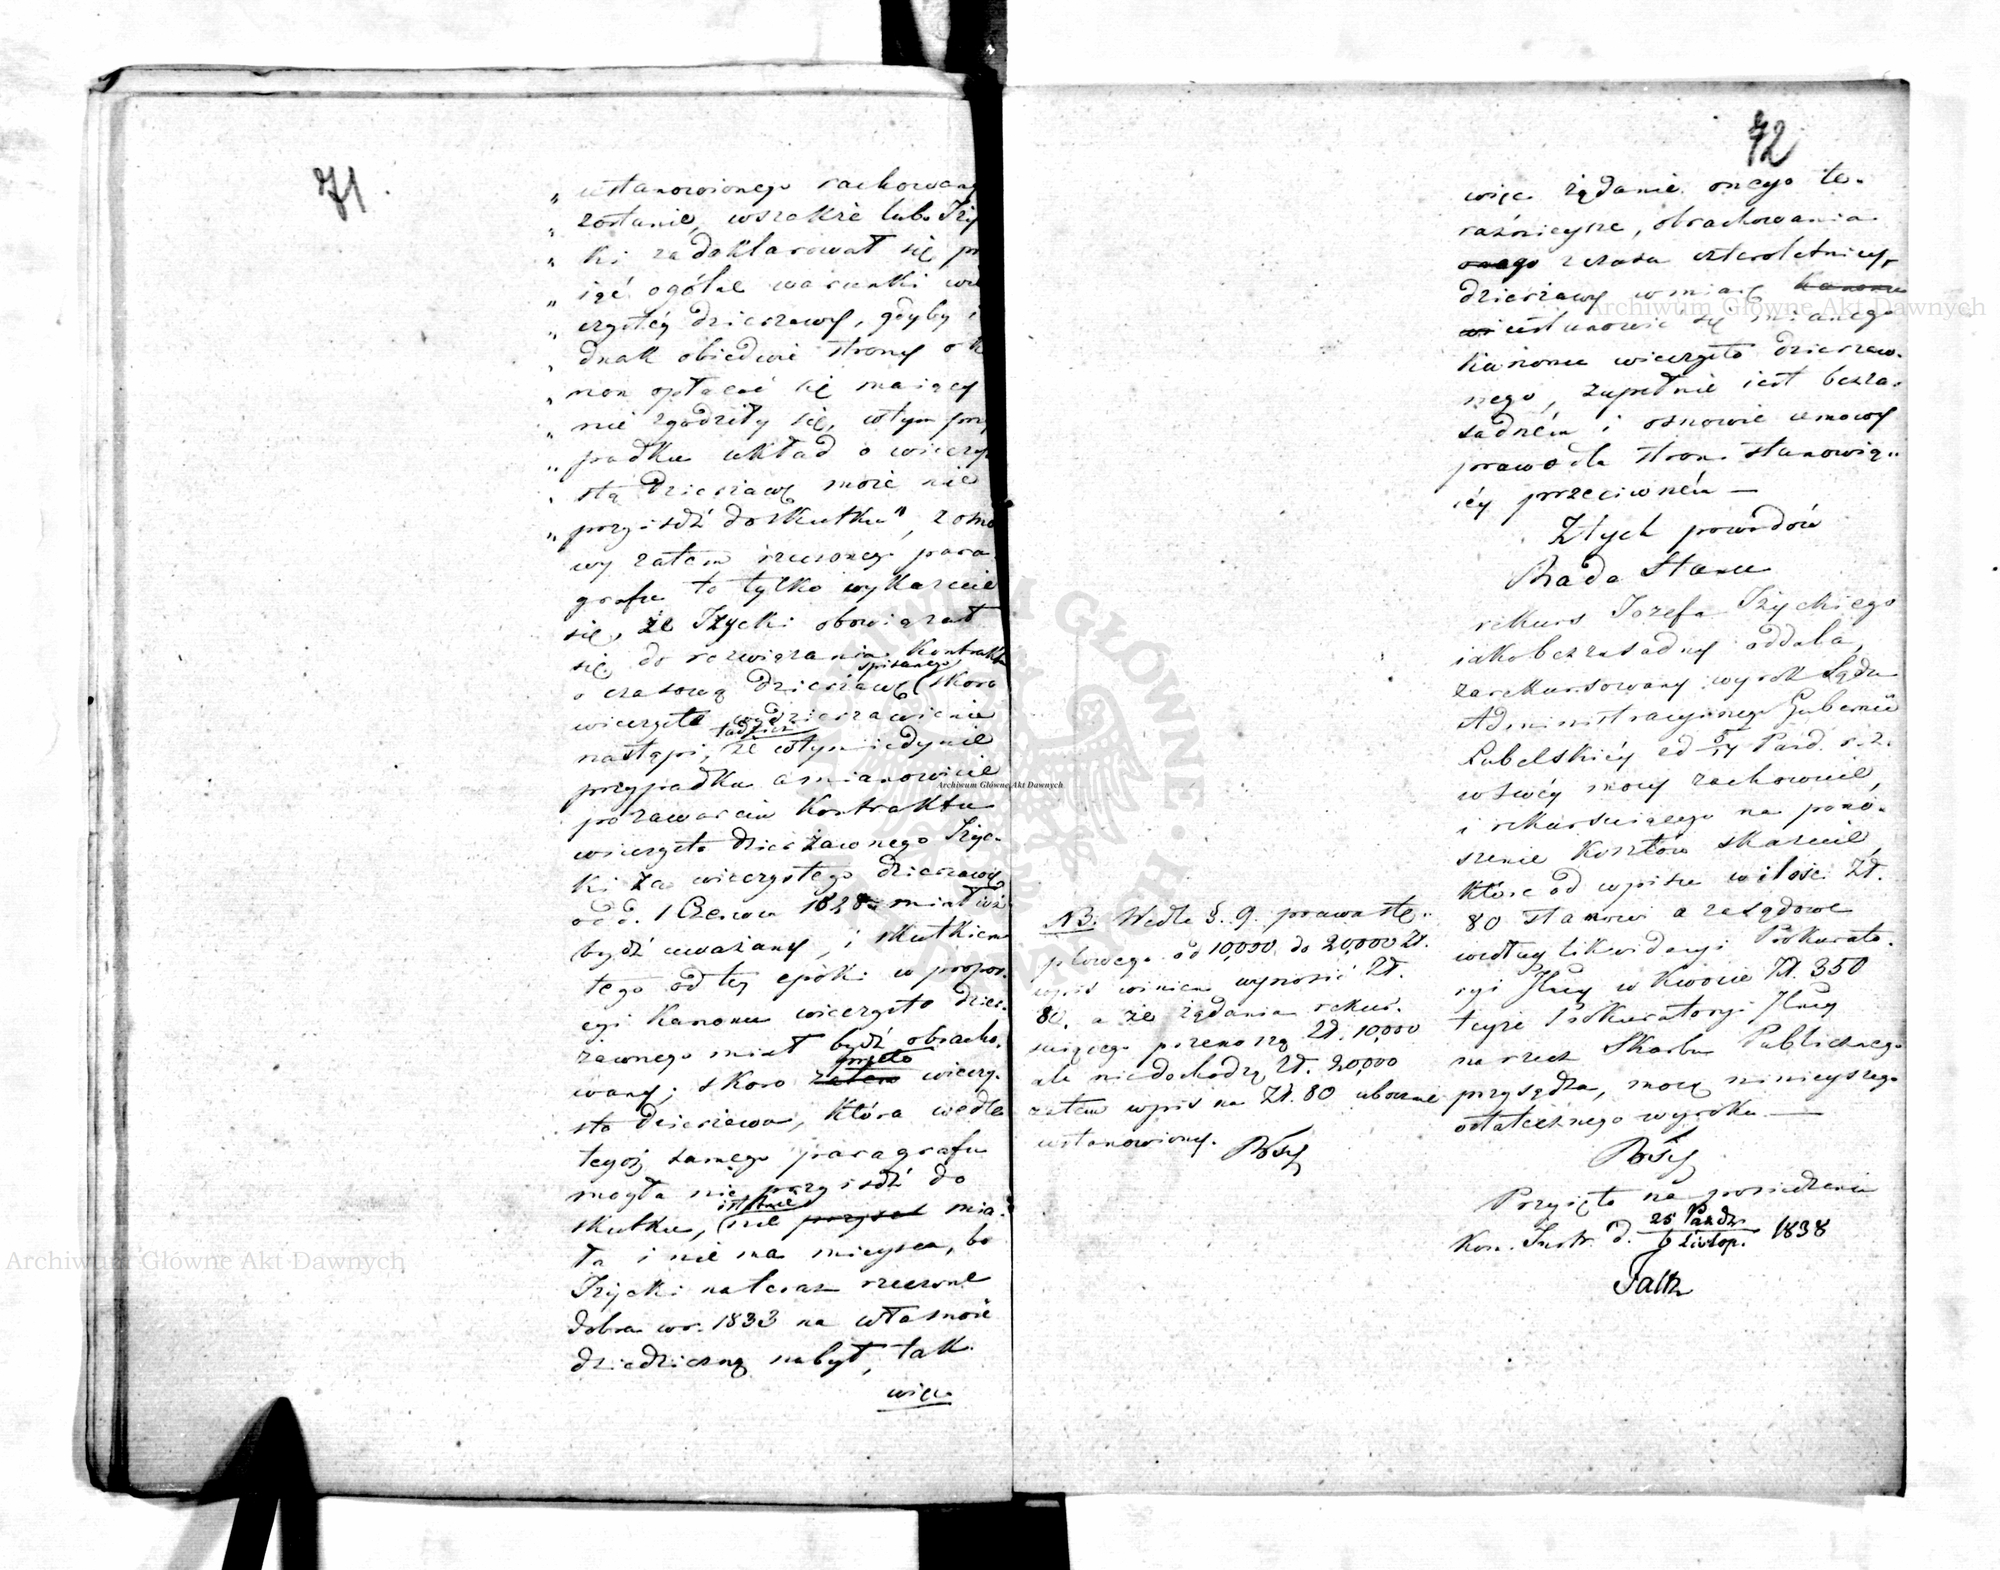 71.
„ ustanowionego rachowany
„ zostanie, wszakże lubo Iży
„ ki zadeklarował się pr
„ iąć ogólne warunki wie
„ czystéy dzierzawy, gdyby ie
„ dnak obiedwie strony o ka
„ non opłacać się maiący
„ nie zgodziły się, wtym przy
„ padku układ o wieczy
„ stą dzierżawę może nie
„ przyiśdź do skutku", z osno
wy zatem rzeczonego para
grafu to tylko wykazuie
się, że Iżycki obowiązał
się do rozwiązania Kontraktu
spisanego
o czasową dzierżawę skoro
wieczyste wydzierzawienie
tudzież
nastąpi, że wtym iedynie
przypadku a mianowicie
po zawarciu Kontraktu
wieczysto dzierżawnego Iżyc-
ki za wieczystego dzierzawcę
od d. 1 Czerwca 1828 miał iuż
bydź uważany, i skutkiem
tego od tey epoki w propor-
cyi Kanonu wieczysto dzier-
żawnego miał bydź obracho-
wany; skoro zatem wieczy-
sta dzierżawa, która wedle
tegoż samego paragrafu
mogła nie przyiśdź do
istotnie
skutku, nie przyszła mia-
ła i nie ma mieysca, bo
Iżycki natomiast rzeczone
dobra w r. 1833 na własność
dziedziczną nabył, tak
więc
72
więc żądanie onego te-
raźnieysze, obrachowania
onego z czasu czteroletniey
dzierżawy w miarę Kanonu
ustanowić się mianego
Kanonu wieczysto dzierzaw-
nego, zupełnie iest bezza-
sadném i osnowie umowy
prawo dla stron stanowią-
céy przeciwném —
Z tych powodów
Rada Stanu
rekurs Jozefa Iżyckiego
iako bezzasadny oddala,
zarekursowany wyrok Sądu
Administracyinego Gubernii
Lubelskiéy od 5/17 Pazd. r. z.
w swéy mocy zachowuie,
i rekursuiącego na pono-
szenie kosztów skazuie,
które od wpisu w ilości Zł.
80 stanowi a zasądowe
według likwidacyi Prokurato-
ryi Jlney w kwocie Zł. 350
teyże Prokuratoryi Jlney
na rzecz Skarbu Publicznego
przysądza, mocą ninieyszego
ostatecznego wyroku. —
Przyięto na posiedzeniu
Kom. Instr. d. 25 Pazdz./6 Listop. 1838
Faltz
NB. Wedle §. 9. prawa stę-
plowego od 10,000 do 20,000 Zł.
wpis winien wynosić Zł.
80. a że żądania rekur-
suiącego przenoszą Zł. 10,000
ale niedochodzą Zł. 20,000
zatem wpis na Zł. 80
ustanowiony.
Archiwum Główne Akt Dawnych
Archiwum Główne Akt Dawnych
Archiwum Główne Akt Dawnych